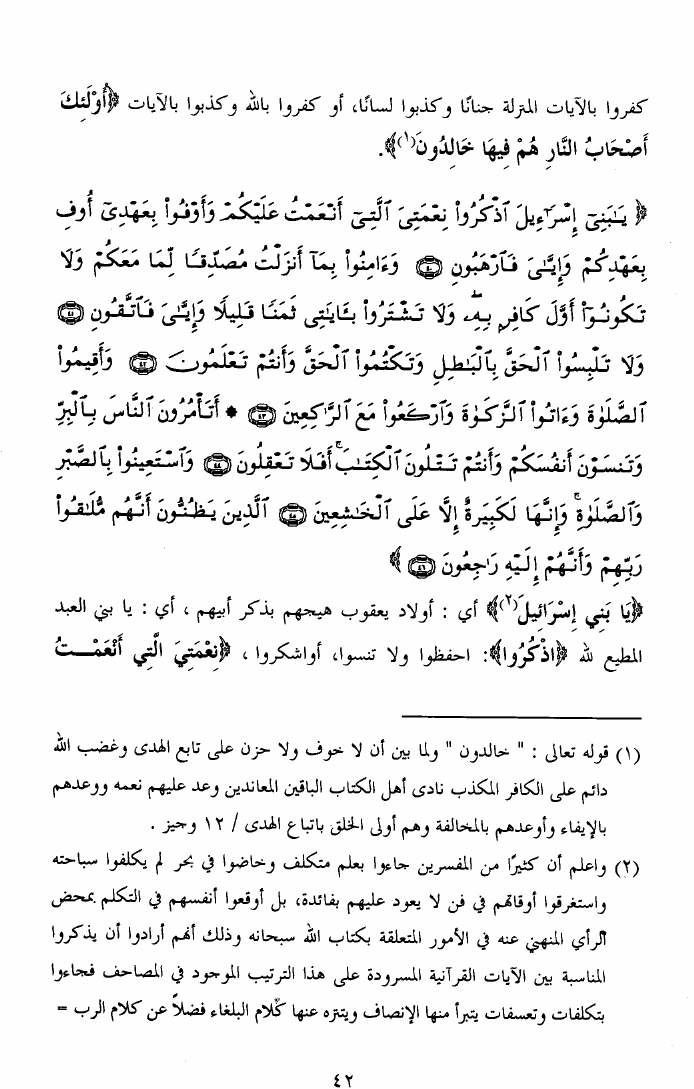 كفروا بالآيات المنزلة جنانًا وكذبوا لسانًا، أو كفروا بالله وكذبوا بالآيات ﴿أُوْلَئِكَ
أَصْحَابُ النَّارِ هُمْ فِيهَا خَالِدُونَ(١)﴾.
﴿ يَـٰبَنِىٓ إِسْرَٰٓءِيلَ ٱذْكُرُوا۟ نِعْمَتِىَ ٱلَّتِىٓ أَنْعَمْتُ عَلَيْكُمْ وَأَوْفُوا۟ بِعَهْدِىٓ أُوفِ
بِعَهْدِكُمْ وَإِيَّـٰىَ فَٱرْهَبُونِ ﴿٤٠﴾ وَءَامِنُوا۟ بِمَآ أَنزَلْتُ مُصَدِّقًا لِّمَا مَعَكُمْ وَلَا
تَكُونُوٓا۟ أَوَّلَ كَافِرٍۭ بِهِۦ ۖ وَلَا تَشْتَرُوا۟ بِـَٔايَـٰتِى ثَمَنًا قَلِيلًا وَإِيَّـٰىَ فَٱتَّقُونِ ﴿٤١﴾
وَلَا تَلْبِسُوا۟ ٱلْحَقَّ بِٱلْبَـٰطِلِ وَتَكْتُمُوا۟ ٱلْحَقَّ وَأَنتُمْ تَعْلَمُونَ ﴿٤٢﴾ وَأَقِيمُوا۟
ٱلصَّلَوٰةَ وَءَاتُوا۟ ٱلزَّكَوٰةَ وَٱرْكَعُوا۟ مَعَ ٱلرَّٰكِعِينَ ﴿٤٣﴾ * أَتَأْمُرُونَ ٱلنَّاسَ بِٱلْبِرِّ
وَتَنسَوْنَ أَنفُسَكُمْ وَأَنتُمْ تَتْلُونَ ٱلْكِتَـٰبَ ۚ أَفَلَا تَعْقِلُونَ ﴿٤٤﴾ وَٱسْتَعِينُوا۟ بِٱلصَّبْرِ
وَٱلصَّلَوٰةِ ۚ وَإِنَّهَا لَكَبِيرَةٌ إِلَّا عَلَى ٱلْخَـٰشِعِينَ ﴿٤٥﴾ ٱلَّذِينَ يَظُنُّونَ أَنَّهُم مُّلَـٰقُوا۟
رَبِّهِمْ وَأَنَّهُمْ إِلَيْهِ رَٰجِعُونَ ﴿٤٦﴾ ﴾
﴿يَا بَنِي إِسْرَائِيلَ(٢)﴾ أي : أولاد يعقوب هيجهم بذكر أبيهم ، أي : يا بني العبد
المطيع لله ﴿اذْكُرُوا﴾: احفظوا ولا تنسوا، أواشكروا ، ﴿نِعْمَتِيَ الَّتِي أَنْعَمْتُ
(١) قوله تعالى : " خالدون " ولما بين أن لا خوف ولا حزن على تابع الهدى وغضب الله
دائم على الكافر المكذب نادى أهل الكتاب الباقين المعاندين وعد عليهم نعمه ووعدهم
بالإيفاء وأوعدهم بالمخالفة وهم أولى الخلق باتباع الهدى / ١٢ وجيز .
(٢) واعلم أن كثيرًا من المفسرين جاءوا بعلم متكلف وخاضوا في بحر لم يكلفوا سباحته
واستغرقوا أوقاتهم في فن لا يعود عليهم بفائدة، بل أوقعوا أنفسهم في التكلم بمحض
الرأي المنهي عنه في الأمور المتعلقة بكتاب الله سبحانه وذلك أنهم أرادوا أن يذكروا
المناسبة بين الآيات القرآنية المسرودة على هذا الترتيب الموجود في المصاحف فجاءوا
بتكلفات وتعسفات يتبرأ منها الإنصاف ويتنزه عنها كلام البلغاء فضلاً عن كلام الرب =
٤٢